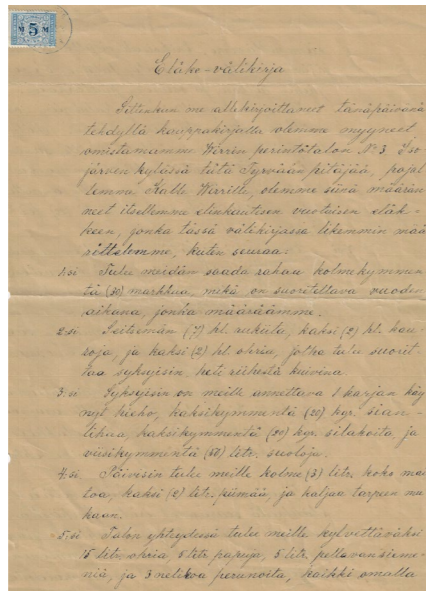 M 5 M
Eläke-välikirja
Sittenkun me allekirjoittaneet tänäpäivänä
tehdyllä kauppakirjalla olemme myyneet
omistamamme Wärrin perintötalon No 3 Iso
järven kylässä tätä Tyrvään pitäjää, pojal
lemme Kalle Wärille, olemme siinä määrän
neet itsellemme elinkautisen vuotuisen eläk-
keen, jonka tässä välikirjassa likemmin mää
rittelemme, kuten seuraa:
1:si Tulee meidän saada rahaa kolmekymmen
tä (30) markkaa, mikä on suoritettava vuoden
aikana, jonka määräämme.
2:si Seitsemän (7) hl. rukiita, kaksi (2) hl. kau-
roja, ja kaksi (2) hl. ohria, jotka tulee suorit-
taa syksyisin, heti riihestä kuivina.
3:si Syksyisin on meille annettava 1 karjan käy
nyt hieho, kaksikymmentä (20) kgr. sian-
lihaa, kaksikymmentä (20) kgr. silakoita ja
viisikymmentä (50) litr. suoloja.
4:si Päivisin tulee meille kolme (3) litr. koko mai
toa, kaksi (2) litr. piimää, ja kaljaa tarpeen mu
kaan.
5:si Talon yhteydessä tulee meille kylvettäväksi
15 litr. ohria 5 litr. papuja, 5 litr. pellavansieme-
niä, ja 3 nelikoa perunoita, kaikki omalla